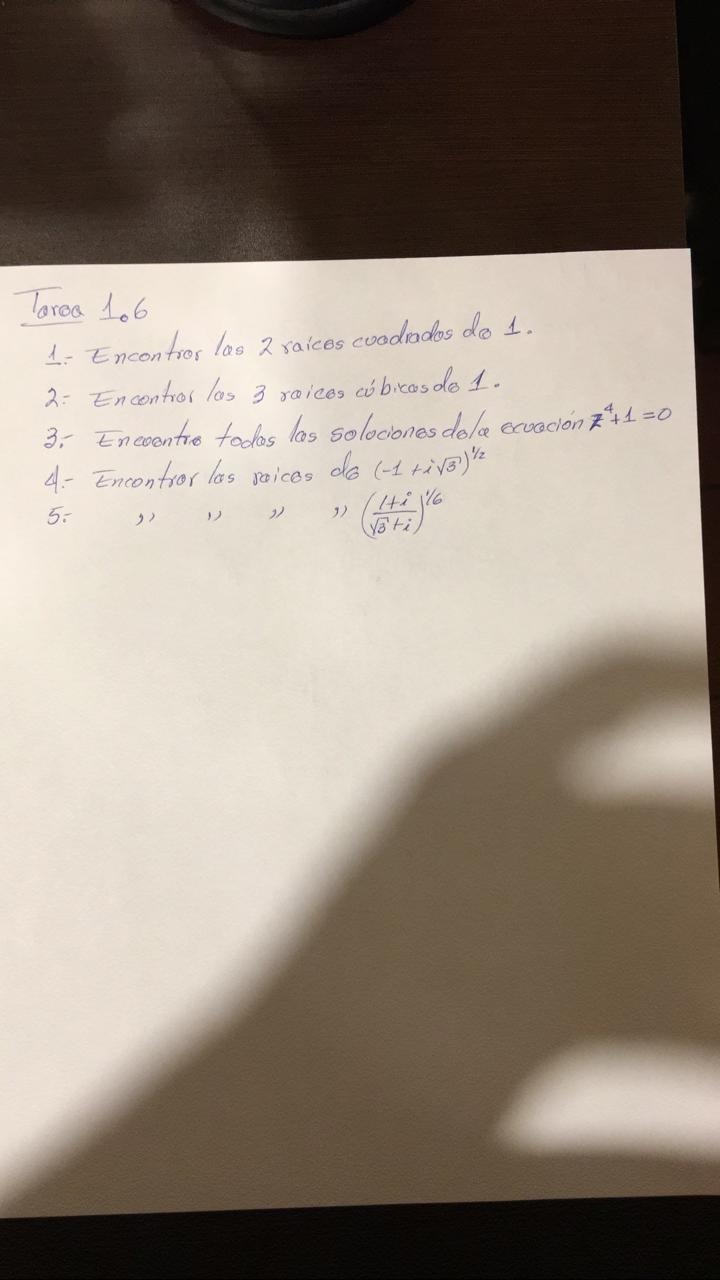 Tarea 1.6
1.- Encontrar las 2 raices cuadradas de 1.
2.- Encontrar las 3 raices cúbicas de 1.
3.- Encuentre todas las soluciones de la ecuación z⁴+1=0
4.- Encontrar las raices de (-1+i√3)^1/2
5.- ,, ,, ,, ,, ((1+i)/(√3+i))^1/6